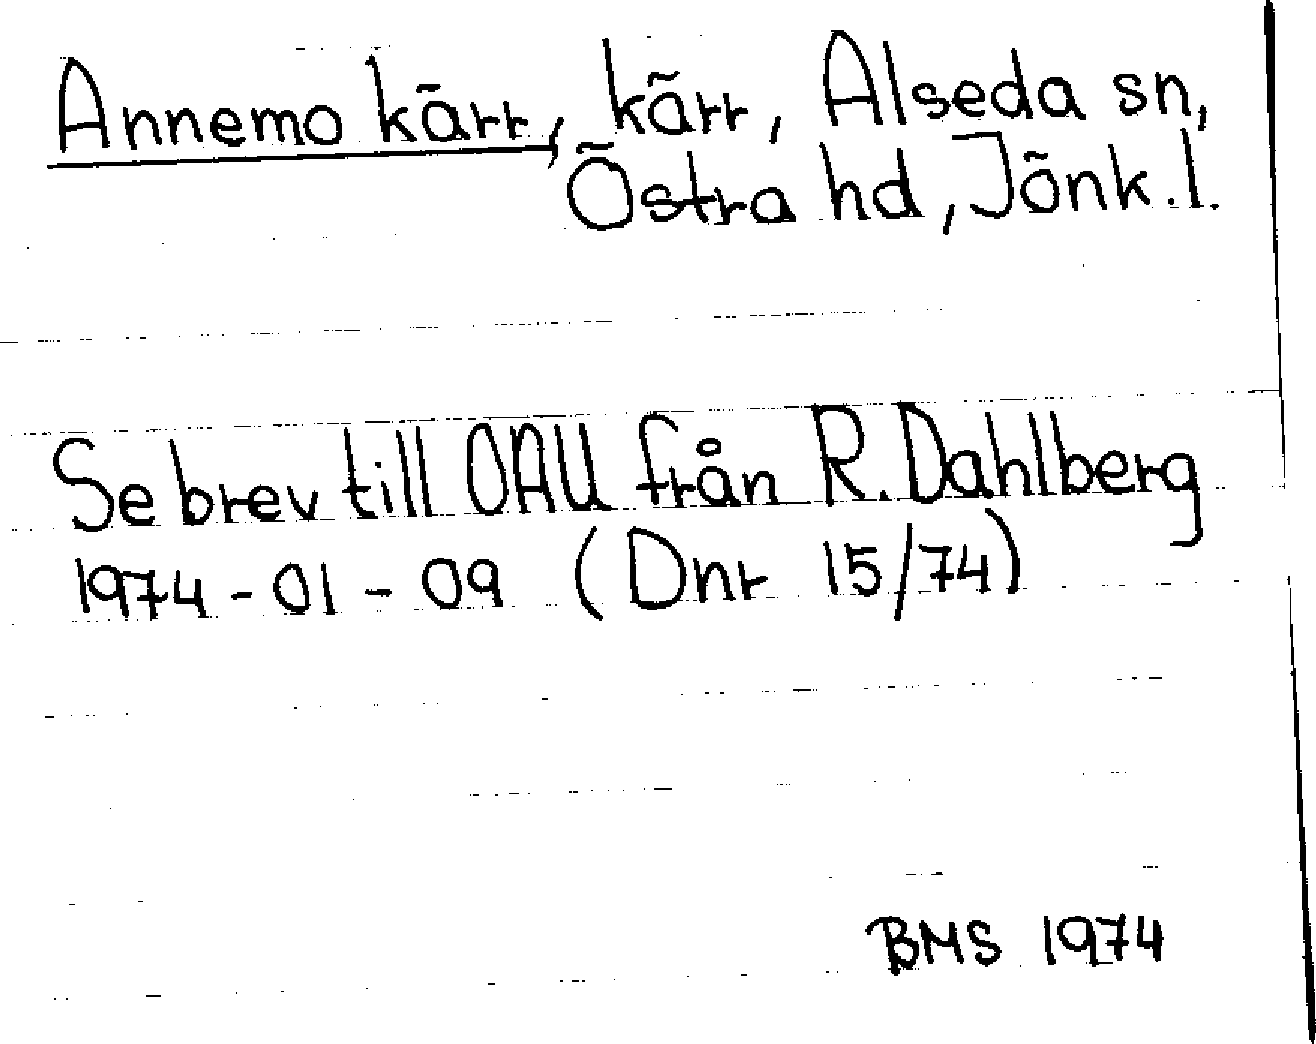 Annemo kärr, kärr, Alseda sn,
Östra hd, Jönk.l.
Se brev till OAU från R. Dahlberg
1974-01-09 (Dnr 15/74)
BMS 1974